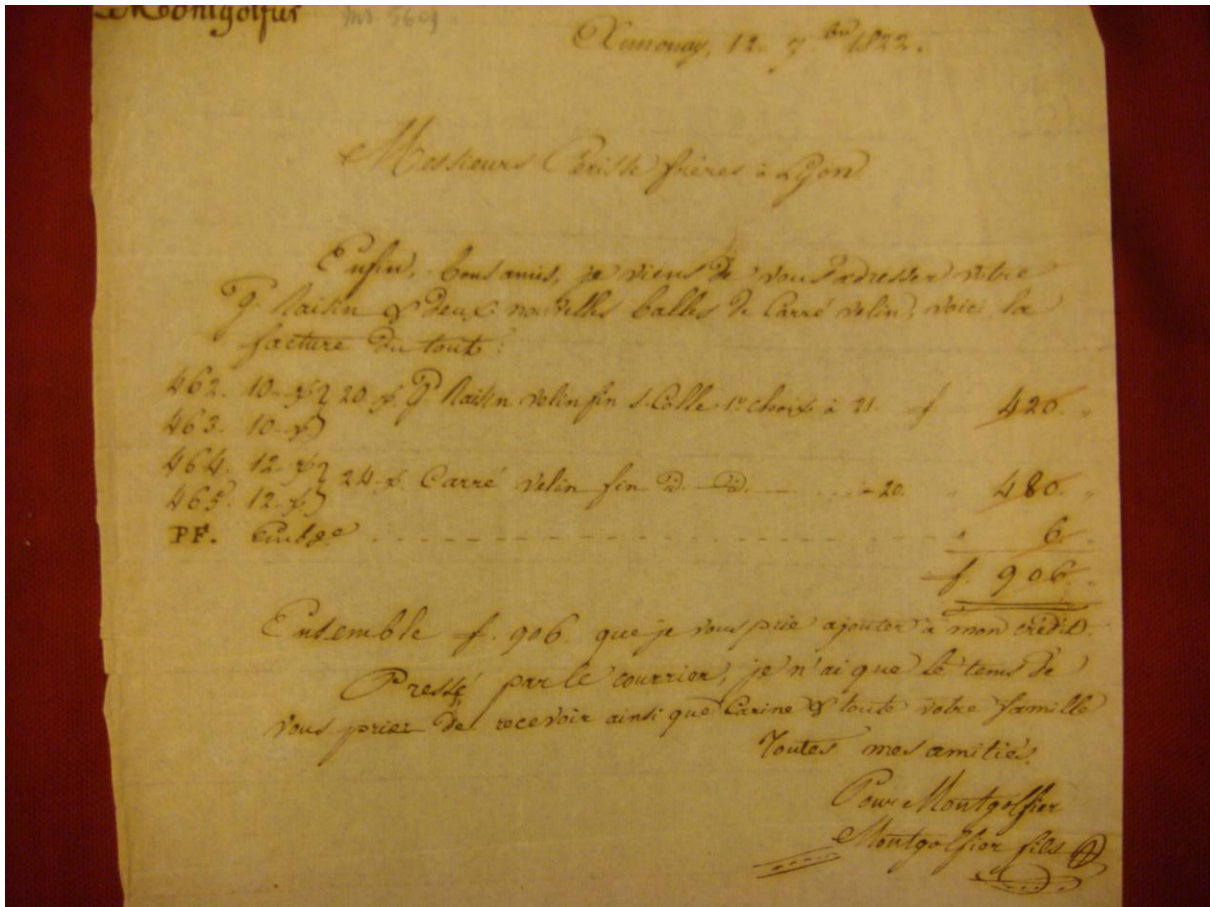 Montgolfier Ms 5609
Annonay, 12. 7.bre 1822.
Messieurs Périsse frères à Lyon
Enfin, bons amis, je viens de vous adresser votre
g. Raisin & deux nouvelles balles de Carré velin, voici la
facture du tout :
462. 10 20 g. Raisin velin fin s. Colle 1er choix à 21. f 420. "
463. 10
464. 12 24 Carré velin fin d. d. - 20. " 480. "
465. 12
PF. Embge " 6. "
f. 906. "
Ensemble f. 906. que je vous prie ajouter à mon crédit.
Pressé par le courrier, je n'ai que le tems de
vous prier de recevoir ainsi que Carine & toute votre famille
Toutes mes amitiés.
Pour Montgolfier
Montgolfier fils